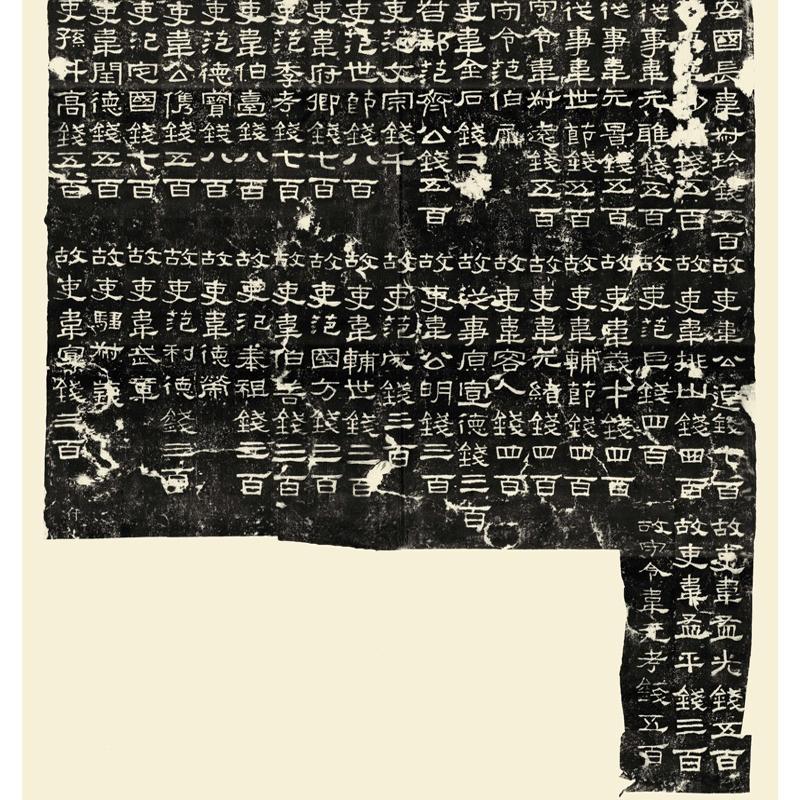 安國長韋叔珍錢五百
錢五百
從事韋元雅錢五百
從事韋元景錢五百
從事韋世節錢五百
守令韋叔遠錢五百
守令范伯犀
吏韋金石錢二
督郵范齊公錢五百
吏范文宗錢千
吏范世節錢八百
吏韋府卿錢七百
吏范季考錢七百
吏韋伯臺錢八百
吏范德寶錢八百
吏韋公儁錢五百
吏氾定國錢七百
吏韋閏德錢五百
吏孫升高錢五百
故吏韋公逴錢七百
故吏韋排山錢四百
故吏范巨錢四百
故吏韋義才錢四百
故吏韋輔節錢四百
故吏韋元緒錢四百
故吏韋客人錢四百
故從事原宣德錢三百
故吏韋公明錢三百
故吏范成錢三百
故吏韋輔世錢三百
故吏范國方錢三百
故吏韋伯善錢三百
故吏氾奉祖錢三百
故吏韋德榮
故吏范利德錢三百
故吏韋武章
故吏騶叔義
故吏韋宣錢三百
故吏韋孟光錢五百
故吏韋孟平錢三百
故守令韋元考錢五百